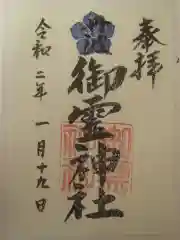 奉拝
御霊神社
令和二年一月十九日